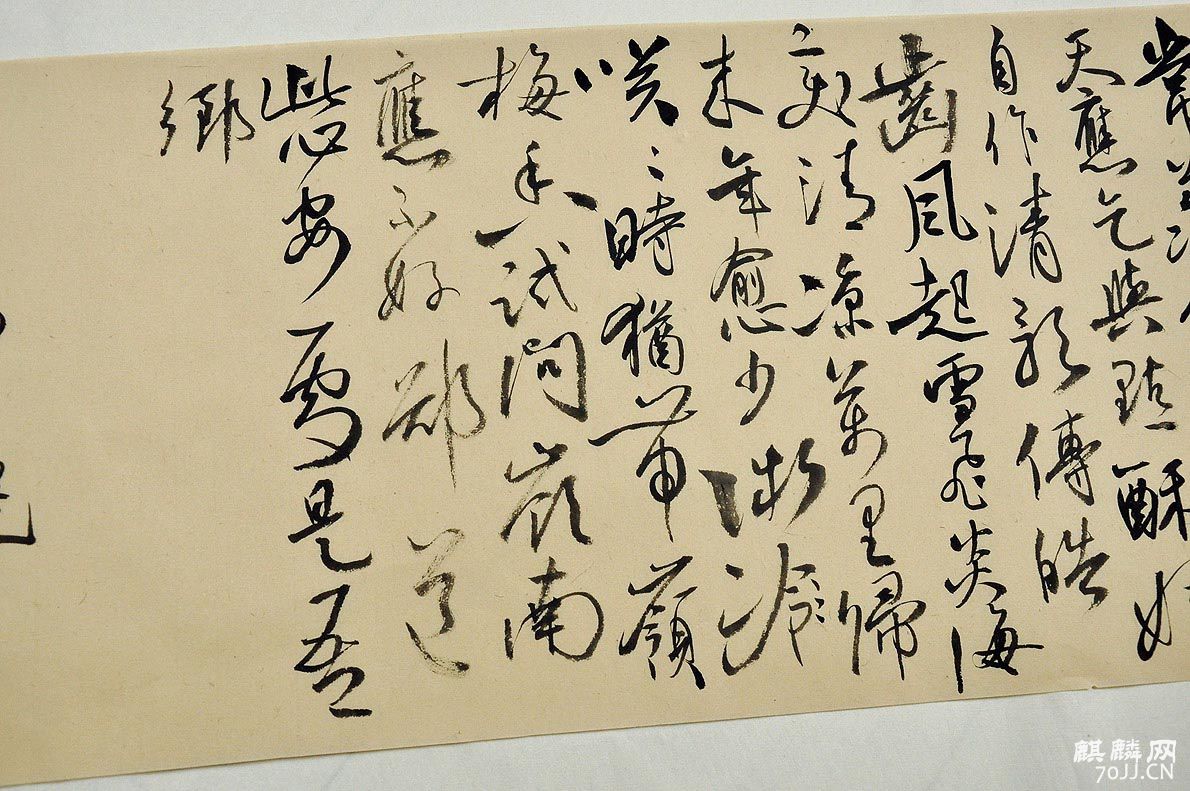 常羨
天應乞與點酥娘
自作清歌傳皓
齒風起雪飛炎海
變清涼萬里歸
來年愈少
笑〻時猶帶嶺
梅香試問嶺南
應不好卻道
此心安處是吾
鄉
麒麟网
70JJ.CN